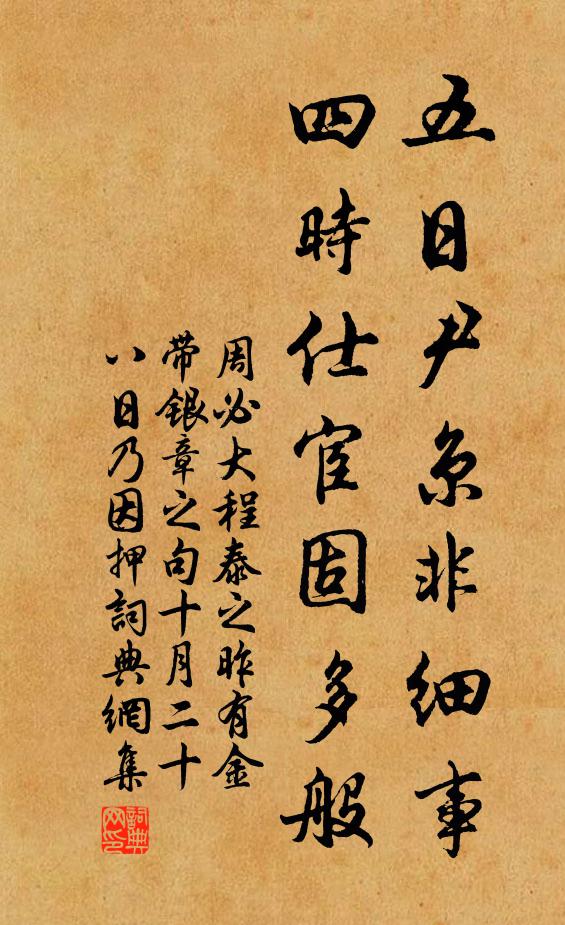 五日尹京非細事
四時仕宦固多般
周必大程泰之昨有金
帶銀章之句十月二十
八日乃因押詞典網集
詞典
网印